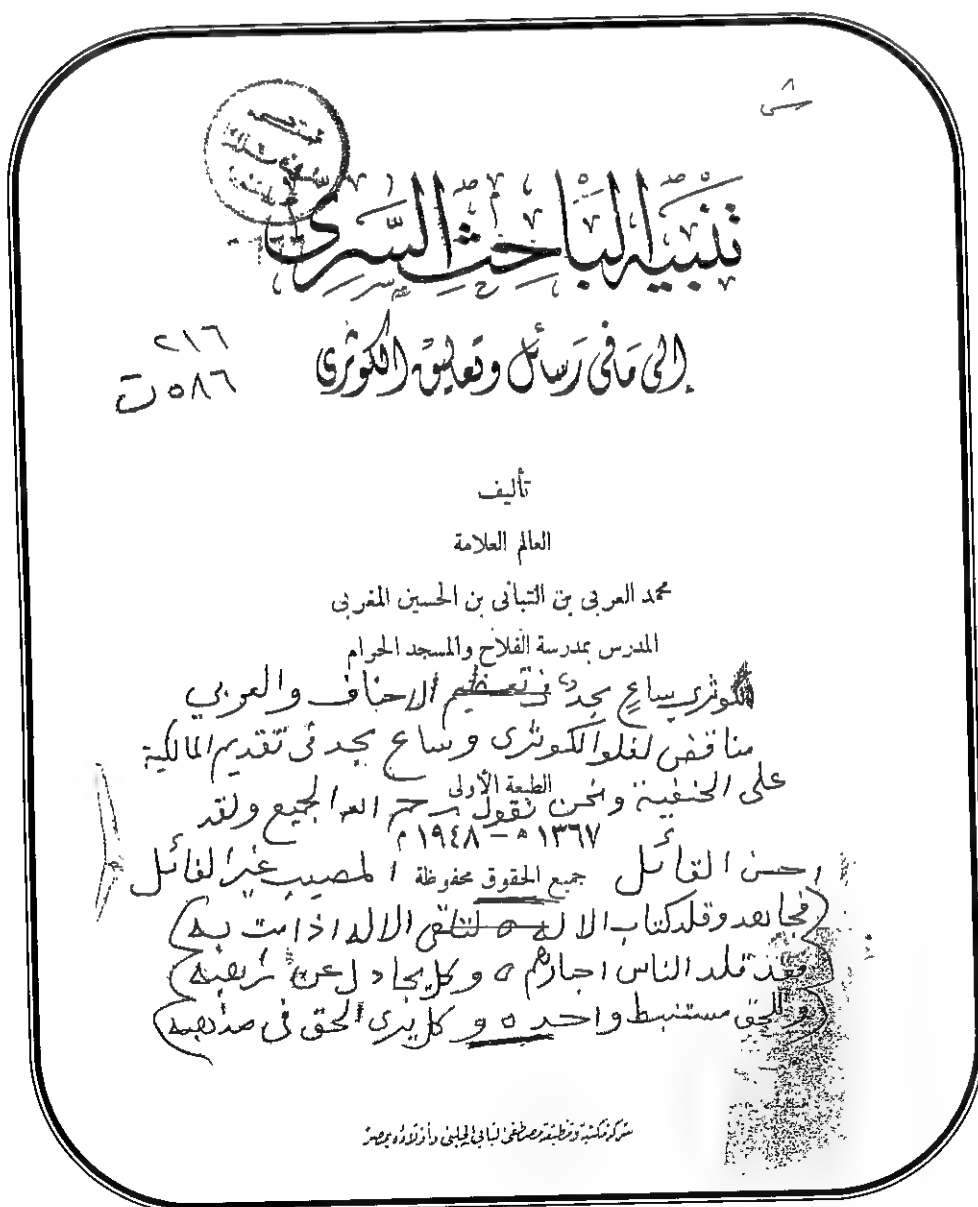 تنبيه الباحث السرى
إلى ما فى رسائل وتعاليق الكوثرى
٢١٦
٥٨٦ ت
تأليف
العالم العلامة
محمد العربى بن التبانى بن الحسين المغربى
المدرس بمدرسة الفلاح والمسجد الحرام
الكوثري ساعٍ بجد في تعظيم الاحناف والعربي
مناقض لغلو الكوثرى وساع بجد فى تقديم المالكية
على الحنفية ونحن نقول رحم الله الجميع ولقد
الطبعة الأولى
١٣٦٧ ه - ١٩٤٨ م
احسن القائل المصيب غير الفائل
جميع الحقوق محفوظة
وقلد كتاب الاله ه لتلقى الاله اذا مت به
فقد قلد الناس احبارهم ه وكل يجادل عن
وللحق مستنبط واحد ه وكل يرى الحق فى مذهبه
شركة مكتبة ومطبعة مصطفى البابى الحلبى وأولاده بمصر